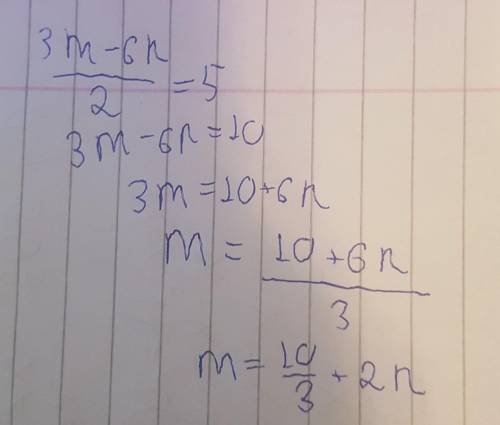 3m-6n/2 = 5
3m-6n=10
3m=10+6n
m = 10+6n/3
m = 10/3 + 2n